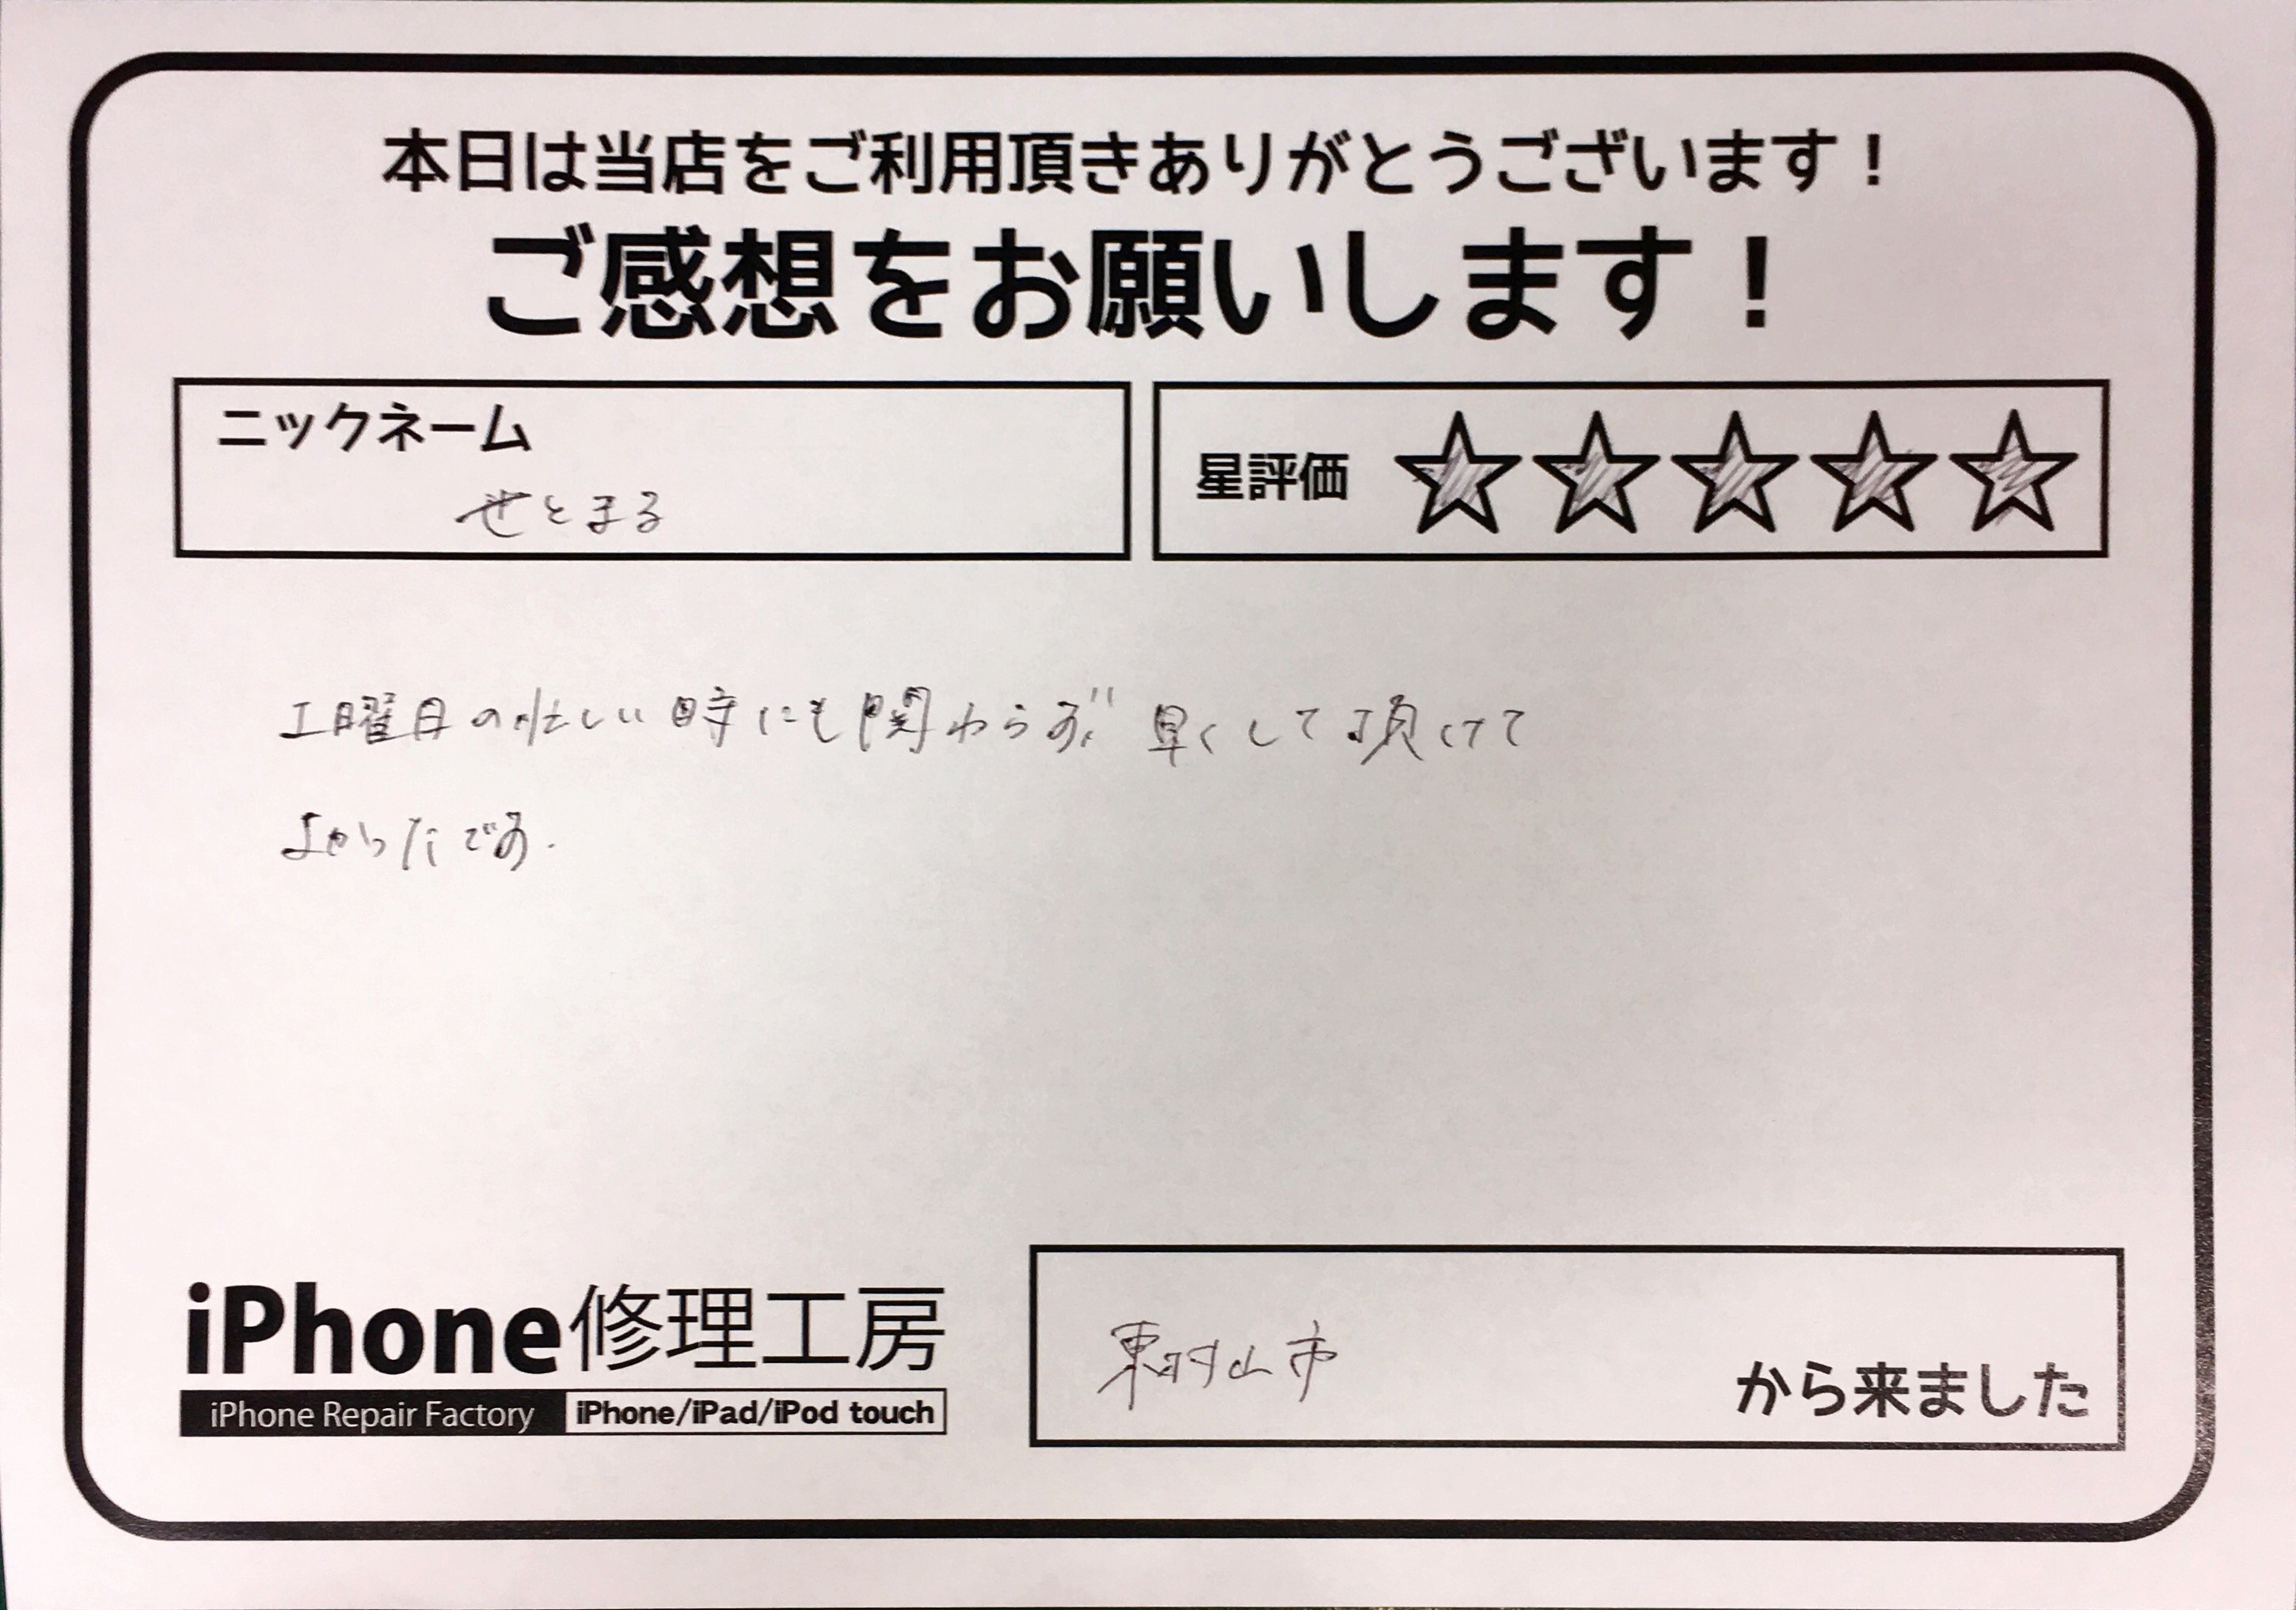 本日は当店をご利用頂きありがとうございます！
ご感想をお願いします！
ニックネーム
せとまる
星評価 ☆☆☆☆☆
土曜日の忙しい時にも関わらず 早くして頂けて
よかったです.
iPhone修理工房
iPhone Repair Factory iPhone/iPad/iPod touch
東村山市
から来ました